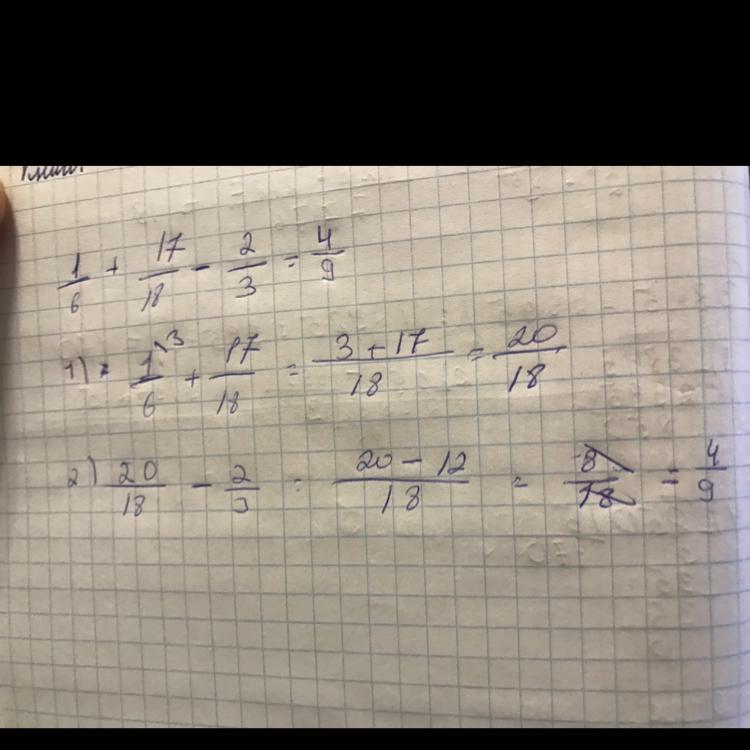 1/6 + 17/18 - 2/3 = 4/9
1) 1/6 ^3 + 17/18 = (3 + 17)/18 = 20/18
2) 20/18 - 2/3 = (20 - 12)/18 = 8/18 = 4/9